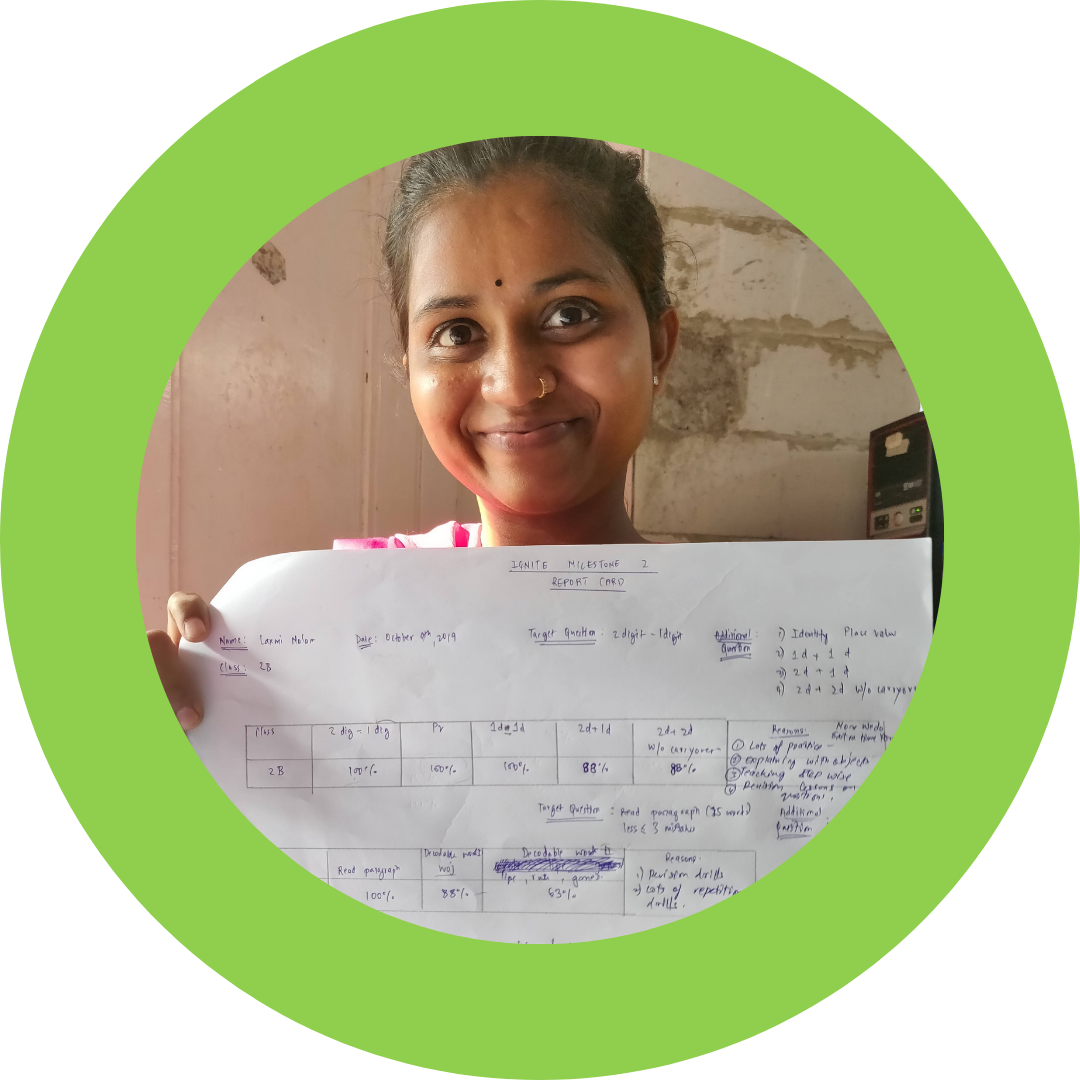 IGNITE MILESTONE 2
REPORT CARD
Name: Laxmi
Date: October 9th, 2019
Target Question: 2 digit - 1 digit
Additional: Question
1) Identify Place value
2) 1d + 1d
3) 2d + 1d
4) 2d + 2d w/o carryover
Class: 2B
Class 2 dig - 1 dig PV 1d 1d 2d + 1d 2d + 2d w/o carryover
2B 100% 100% 100% 88% 88%
Reasons:
① Lots of practice
② explaining with objects
③ Teaching step wise
④ Revision
questions
Target Question: Read paragraph (35 word)
less ≤ 3 mistakes
Additional
Question
Read paragraph Decodable
100% 88% 63%
Reasons:
1) Revision drills
2) Lots of repetition
drills.